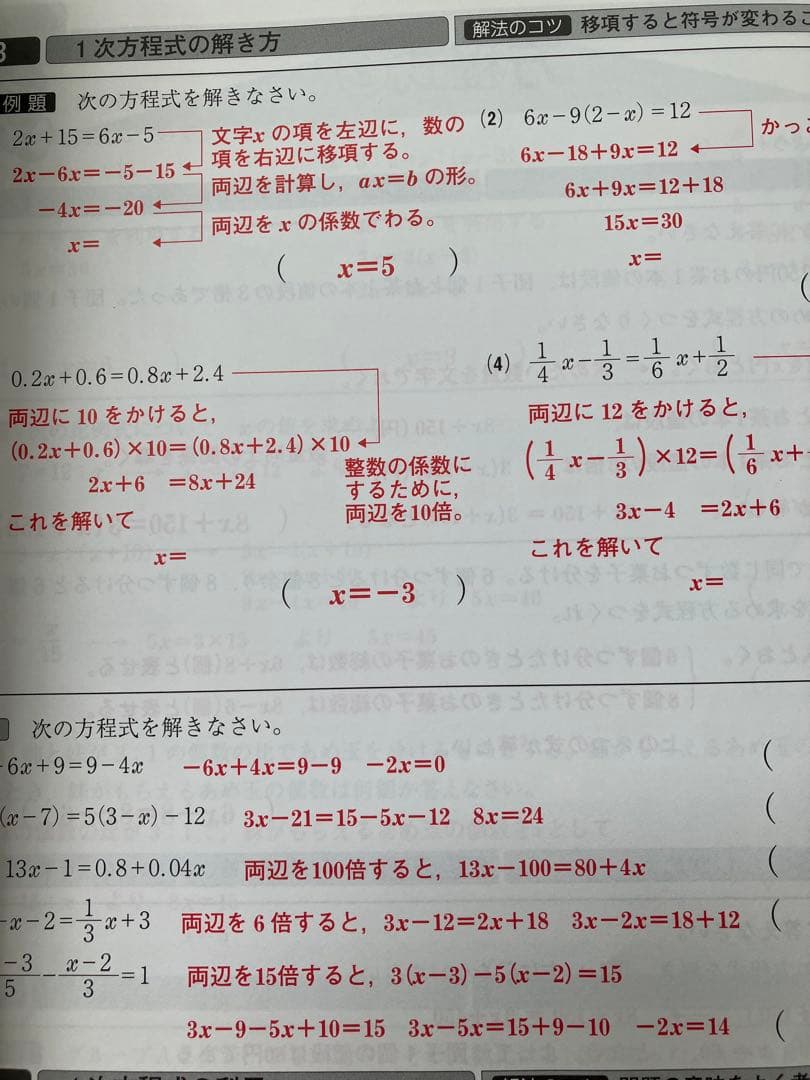 3 1次方程式の解き方
解法のコツ 移項すると符号が変わるこ
例題 次の方程式を解きなさい。
2x+15=6x−5
文字xの項を左辺に,数の
項を右辺に移項する。
2x−6x=−5−15
両辺を計算し,ax=bの形。
−4x=−20
両辺をxの係数でわる。
x=
( x=5 )
(2) 6x−9(2−x)=12
かっこ
6x−18+9x=12
6x+9x=12+18
15x=30
x=
(
0.2x+0.6=0.8x+2.4
両辺に10をかけると,
(0.2x+0.6)×10=(0.8x+2.4)×10
2x+6 =8x+24
整数の係数に
するために,
両辺を10倍。
これを解いて
x=
( x=−3 )
(4) 1/4 x−1/3=1/6 x+1/2
両辺に12をかけると,
(1/4 x−1/3)×12=(1/6 x+
3x−4 =2x+6
これを解いて
x=
次の方程式を解きなさい。
-6x+9=9−4x −6x+4x=9−9 −2x=0 (
(x−7)=5(3−x)−12 3x−21=15−5x−12 8x=24 (
13x−1=0.8+0.04x 両辺を100倍すると,13x−100=80+4x (
x−2=1/3 x+3 両辺を6倍すると,3x−12=2x+18 3x−2x=18+12 (
−3/5−(x−2)/3=1 両辺を15倍すると,3(x−3)−5(x−2)=15
3x−9−5x+10=15 3x−5x=15+9−10 −2x=14 (